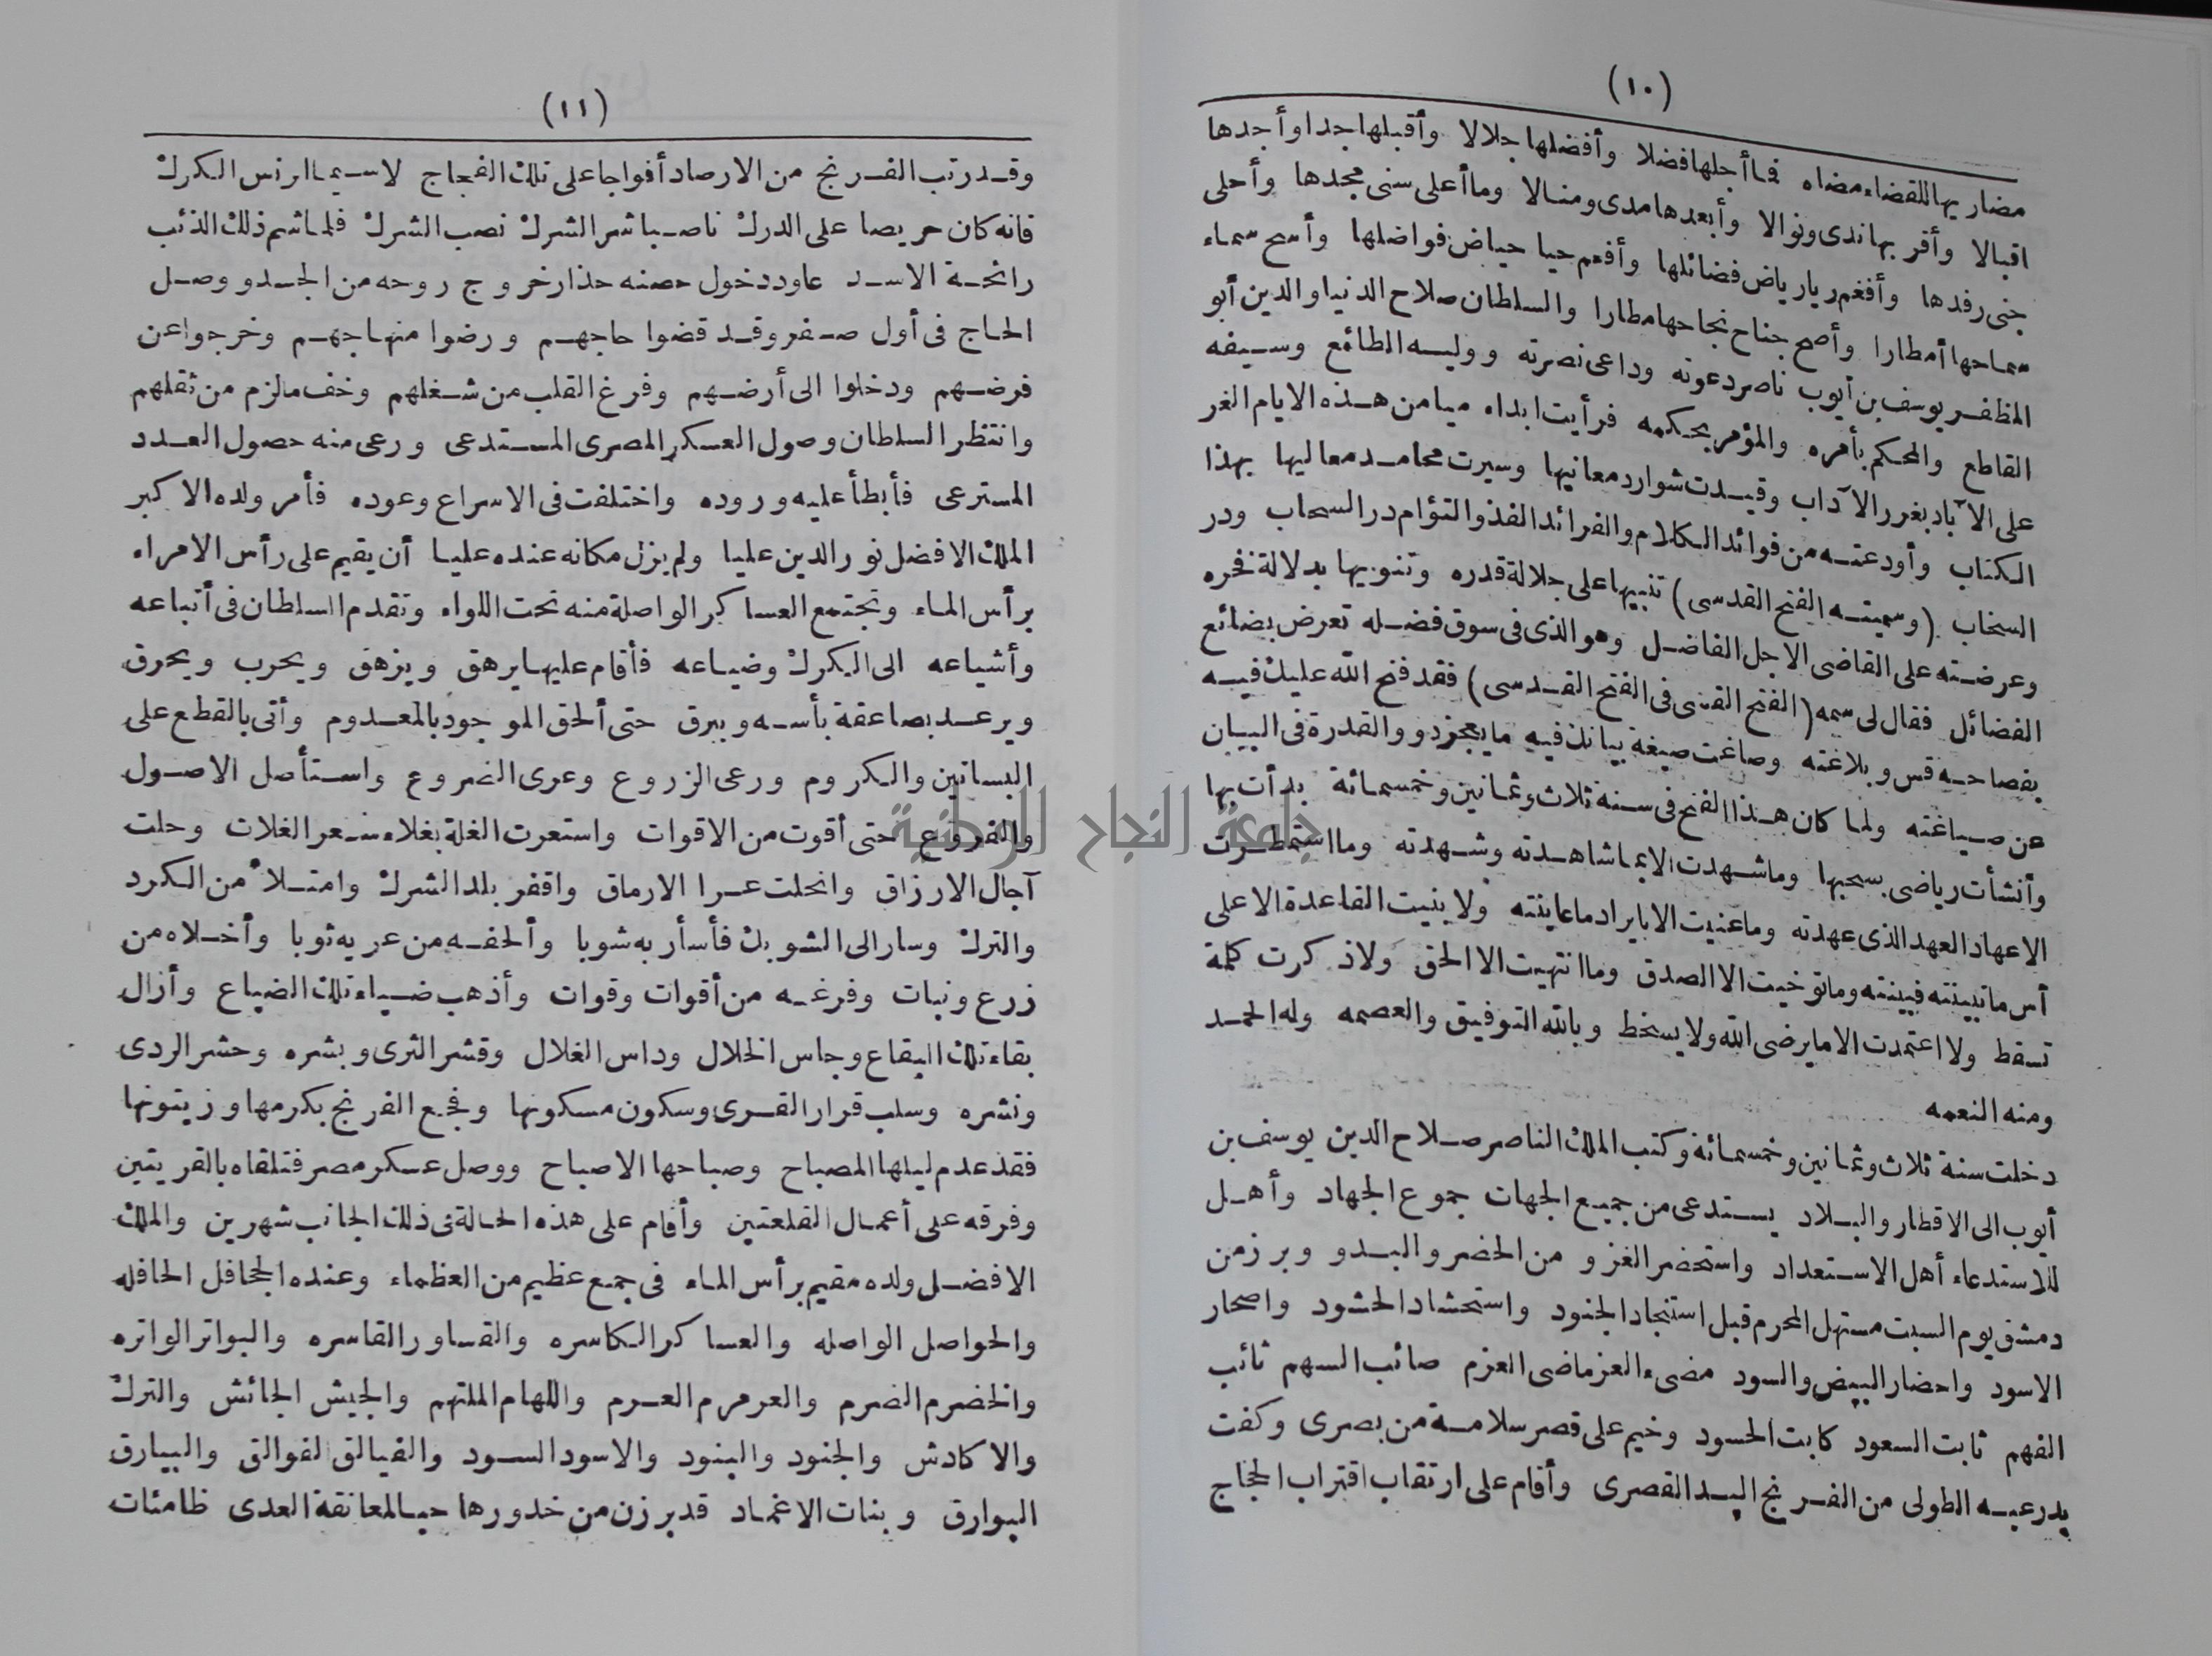 (١٠)
مضاربها للقضاء مضاه فما أجلها فضلا وأفضلها جلالا وأقبلها جدا وأجدها
اقبالا وأقربها ندى ونوالا وأبعدها مدى ومنالا وما أعلى سنى مجدها وأحلى
جنى رفدها وأفغم ريا رياض فضائلها وأفعم حيا حياض فواضلها وأسح سماء
سماحها أمطارا وأصح جناح نجاحها مطارا والسلطان صلاح الدنيا والدين أبو
المظفر يوسف بن أيوب ناصر دعوته وداعى نصرته ووليه الطائع وسيفه
القاطع والمحكم بأمره والمؤمر بحكمه فرأيت ابداء ميامن هذه الايام الغر
على الآباد بغرر الآداب وقيدت شوارد معانيها وسيرت محامد معاليها بهذا
الكتاب وأودعته من فوائد الكلام والفرائد الفذ والتؤام در السحاب ودر
السخاب (وسميته الفتح القدسى) تنبيها على جلالة قدره وتنويها بدلالة فخره
وعرضته على القاضى الاجل الفاضل وهو الذى فى سوق فضله تعرض بضائع
الفضائل فقال لى سمه (الفتح القسى فى الفتح القدسى) فقد فتح الله عليك فيه
بفصاحه قس وبلاغته وصاغت صيغة بيانك فيه ما يعجز ذوو القدرة فى البيان
عن صياغته ولما كان هذا الفتح فى سنة ثلاث وثمانين وخمسمائة بدأت بها
وأنشأت رياضى بسحبها وما شهدت الا بما شاهدته وشهدته وما استمطرت
الا عهاد العهد الذى عهدته وما عنيت الا بايراد ما عاينته ولا بنيت القاعدة الا على
أس ما تبينته فبينته وما توخيت الا الصدق وما انتهيت الا الحق ولا ذكرت كلمة
تسقط ولا اعتمدت الا ما يرضى الله ولا يسخط وبالله التوفيق والعصمه وله الحمد
ومنه النعمه
دخلت سنة ثلاث وثمانين وخمسمائة وكتب الملك الناصر صلاح الدين يوسف بن
أيوب الى الاقطار والبلاد يستدعى من جميع الجهات جموع الجهاد وأهل
للاستدعاء أهل الاستعداد واستحضر الغزو من الحضر والبدو وبرز من
دمشق يوم السبت مستهل المحرم قبل استنجاد الجنود واستحشاد الحشود واصحار
الاسود واحضار البيض والسود مضىء العز ماضى العزم صائب السهم ثاقب
الفهم ثابت السعود كابت الحسود وخيم على قصر سلامة من بصرى وكفت
يد رعبه الطولى من الفرنج اليد القصرى وأقام على ارتقاب اقتراب الحجاج
(١١)
وقد رتب الفرنج من الارصاد أفواجا على تلك الفجاج لاسيما ابرنس الكرك
فانه كان حريصا على الدرك ناصبا شر الشرك نصب الشرك فلما شم ذلك الذئب
رائحة الاسد عاود دخول حصنه حذار خروج روحه من الجسد ووصل
الحاج فى أول صفر وقد قضوا حاجهم ورضوا منهاجهم وخرجوا عن
فرضهم ودخلوا الى أرضهم وفرغ القلب من شغلهم وخف ما لزم من ثقلهم
وانتظر السلطان وصول العسكر المصرى المستدعى ورعى منه حصول العدد
المسترعى فأبطأ عليه وروده واختلفت فى الاسراع وعوده فأمر ولده الاكبر
الملك الافضل نور الدين عليا ولم يزل مكانه عنده عليا أن يقيم على رأس الامراء
برأس الماء وتجتمع العساكر الواصلة منه تحت اللواء وتقدم السلطان فى أتباعه
وأشياعه الى الكرك وضياعه فأقام عليها يرهق ويزهق ويحرب ويحرق
ويرعد بصاعقة بأسه ويبرق حتى ألحق الموجود بالمعدوم وأتى بالقطع على
البساتين والكروم ورعى الزروع وعرى الضروع واستأصل الاصول
والفروع حتى أقوت من الاقوات واستعرت الغلة بغلاء سعر الغلات وحلت
آجال الارزاق وانحلت عرا الارماق واقفر بلد الشرك وامتلأ من الكرد
والترك وسار الى الشوبك فأسأر به شوبا وألحفه من عريه ثوبا وأخلاه من
زرع ونبات وفرغه من أقوات وقوات وأذهب ضياء تلك الضياع وأزال
بقاء تلك البقاع وجاس الخلال وداس الغلال وقشر الثرى وبشره وحشر الردى
ونشره وسلب قرار القرى وسكون مسكونها وفجع الفرنج بكرمها وزيتونها
فقد عدم ليلها المصباح وصباحها الاصباح ووصل عسكر مصر فتلقاه بالقريتين
وفرقه على أعمال القلعتين وأقام على هذه الحالة فى ذلك الجانب شهرين والملك
الافضل ولده مقيم برأس الماء فى جمع عظيم من العظماء وعنده الجحافل الحافله
والحواصل الواصله والعساكر الكاسره والقساور القاسره والبواتر الواتره
والخضرم الضرم والعرمرم العرم واللهام الملتهم والجيش الجائش والترك
والاكادش والجنود والبنود والاسود السود والفيالق الفوالق والبيارق
البوارق وبنات الاغماد قد برزن من خدورها حبا لمعانقة العدى ظامئات
جامعة النجاح الوطنية